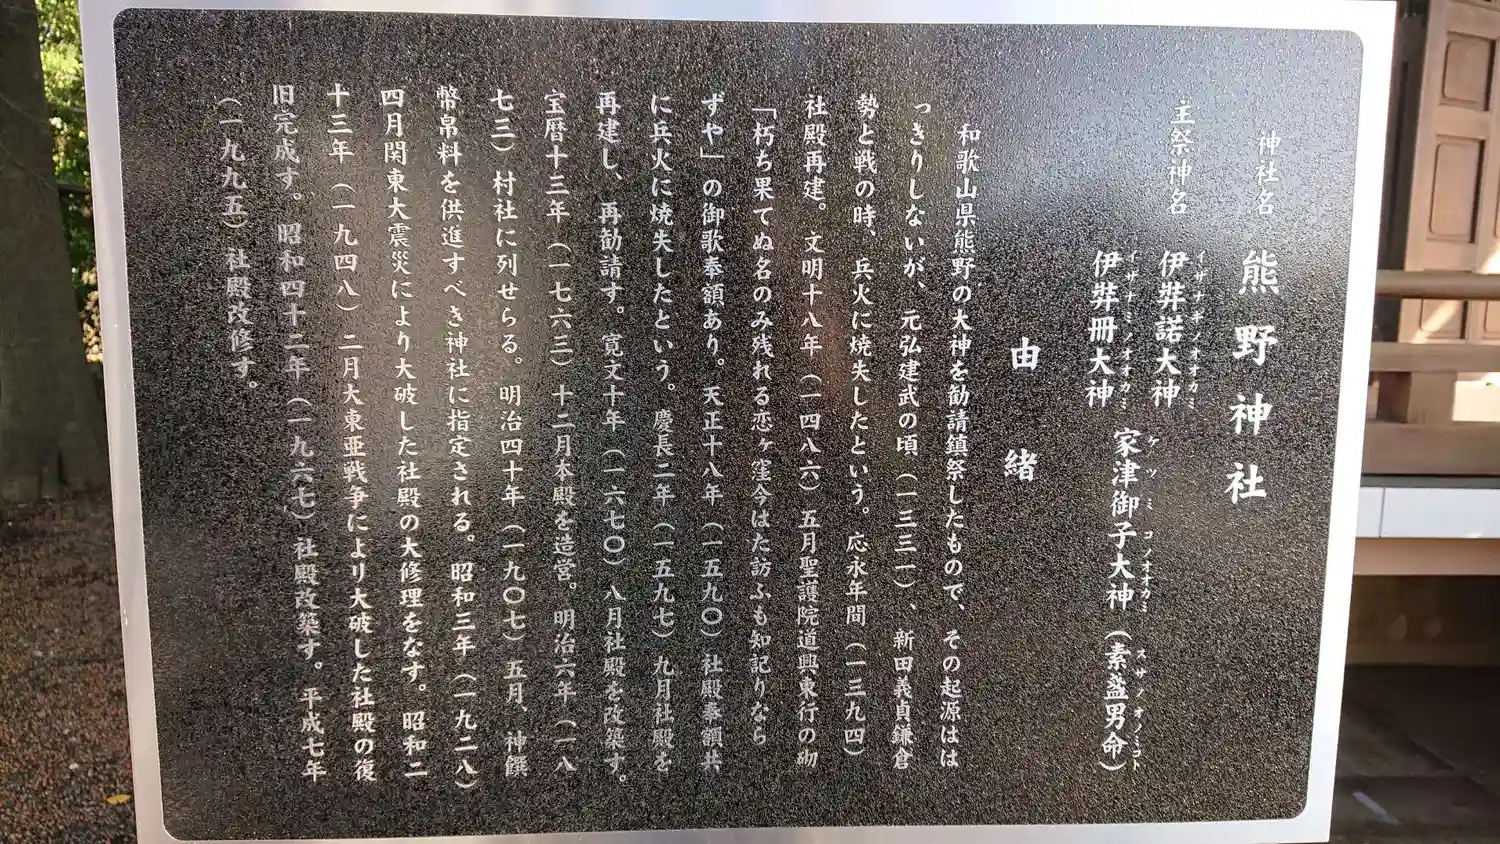 神社名 熊野神社
主祭神名 伊弉諾大神 家津御子大神(素盞男命)
イザナギノオオカミ ケツミコノオオカミ スサノオノミコト
伊弉冊大神
イザナミノオオカミ
由緒
和歌山県熊野の大神を勧請鎮祭したもので、その起源はは
っきりしないが、元弘建武の頃(一三三一)、新田義貞鎌倉
勢と戦の時、兵火に焼失したという。応永年間(一三九四)
社殿再建。文明十八年(一四八六)五月聖護院道興東行の砌
「朽ち果てぬ名のみ残れる恋ヶ窪今はた訪ふも知記りなら
ずや」の御歌奉額あり。天正十八年(一五九〇)社殿奉額共
に兵火に焼失したという。慶長二年(一五九七)九月社殿を
再建し、再勧請す。寛文十年(一六七〇)八月社殿を改築す。
宝暦十三年(一七六三)十二月本殿を造営。明治六年(一八
七三)村社に列せらる。明治四十年(一九〇七)五月、神饌
幣帛料を供進すべき神社に指定される。昭和三年(一九二八)
四月関東大震災により大破した社殿の大修理をなす。昭和二
十三年(一九四八)二月大東亜戦争により大破した社殿の復
旧完成す。昭和四十二年(一九六七)社殿改築す。平成七年
(一九九五)社殿改修す。